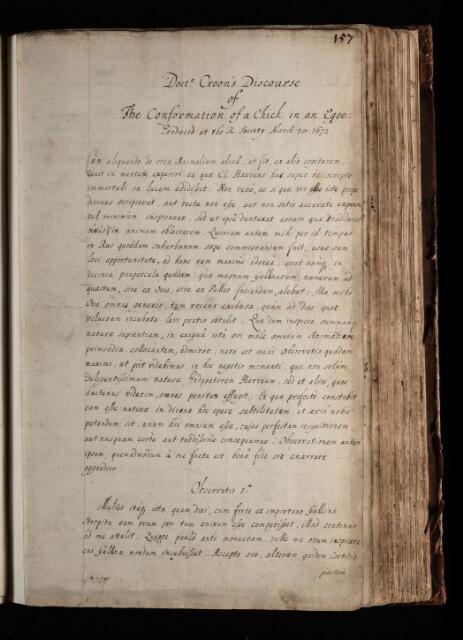 157
Doct.r Croon's Discourse
of
The Conformation of a Chick in an Egge
Produced at the R. Society March 28 1672
Cum aliquando de ortu Animalium aliud, ut fit, ex alio
venit in mentem experiri ea quæ Cl. Harveus hac super re scripto
immortali in lucem edidisset. Non verò, ac si qua vir ille
scripserat, aut recta non esse, aut non satis accurate
vel minimùm suspicarer, sed ut ipsâ duntaxat eorum quæ tradiderat
animum oblectarem. Quoniam autem mihi per id tempus
in Rus quoddam suburbanum sæpe commeandum fuit, usus sum
loci opportunitate, ad hanc rem maximè idoneâ: erat namq in
vicinia paupercula quædam, quæ magnum Gallinarum numerum ad
quæstum, sive ex Ovis, sive ex Pullis faciendum, alebat. Illa mihi
Ova omnis generis, tam recens exclusa, quàm ad dies quot
vellem incubata levi pretio obtulit. Quæ dum inspicio, summam
naturæ sapientiam, in exiguâ istâ ovi mole omnium Animalium
primordia collocantem, admiror, nata est mihi observatio quædam
maximi, ut pòst videbimus, in hoc negotio momenti, quæ non solum
diligentissimum naturæ Indagatorem Harveum, sed et alios, quos
hactenus viderim, omnes penitus effugit. Ex quo profectò constabit
eam esse naturæ in divino hoc opere subtilitatem, ut verò nobis
putandum sit, unum hoc omnium esse, cujus perfectam cognitionem
aut nusquam certò aut tardissimè consequamur. Observationem autem
ipsam, quemadmodum à me facta est, bonâ fide sic enarrare
aggredior.
Observatio 1.a
Mulier itaq ista quam dixi, cum fortè ex importuno Gallinæ
strepitu eam ovum jam tum enixam esse comperisset, illud continuo
ad me attulit. Quippe paulò antè monueram, velle me ovum inspicere
cui Gallina nondum incubuisset. Accepto ovo, alteram quidem Corticis
partem